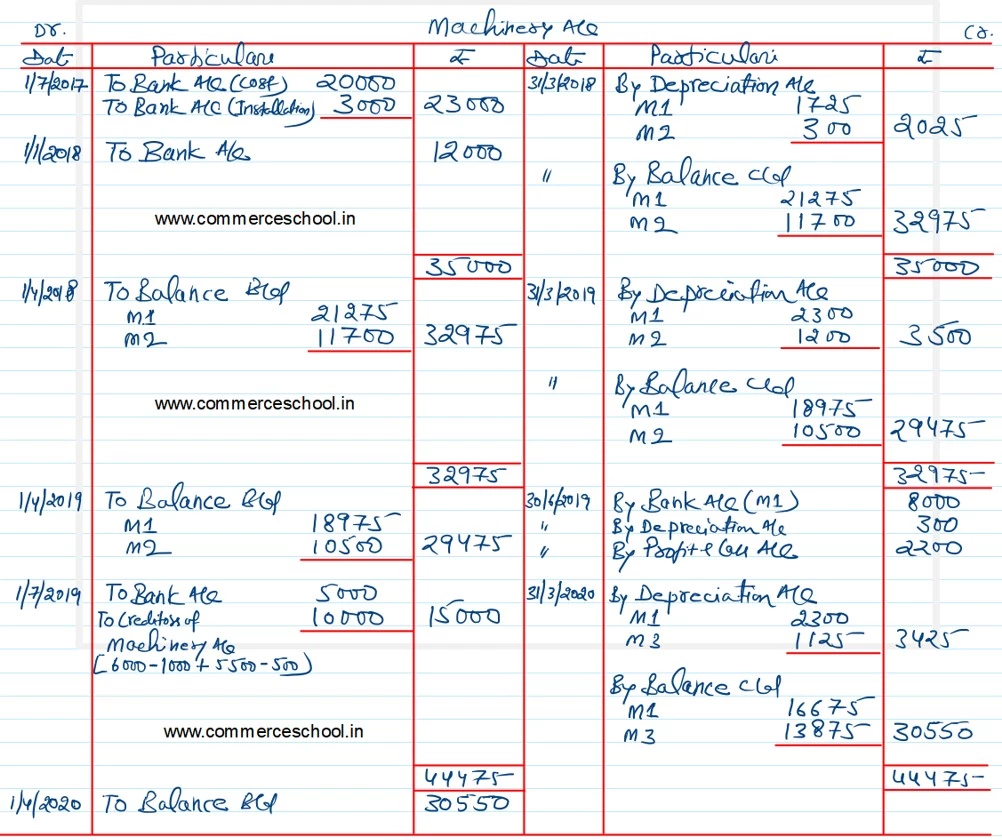 Machinery A/c
Dr. Cr.
Date Particulars ₹ Date Particulars ₹
1/7/2017 To Bank A/c (Cost) 20000 31/3/2018 By Depreciation A/c
To Bank A/c (Installation) 3000 23000 M1 1725
M2 300 2025
1/1/2018 To Bank A/c 12000
" By Balance c/d
M1 21275
www.commerceschool.in M2 11700 32975
35000 35000
1/4/2018 To Balance B/d 31/3/2019 By Depreciation A/c
M1 21275 M1 2300
M2 11700 32975 M2 1200 3500
" By Balance c/d
www.commerceschool.in M1 18975
M2 10500 29475
32975 32975
1/4/2019 To Balance B/d 30/6/2019 By Bank A/c (M1) 8000
M1 18975 " By Depreciation A/c 300
M2 10500 29475 " By Profit & Loss A/c 2200
1/7/2019 To Bank A/c 5000 31/3/2020 By Depreciation A/c
To Creditors of 10000 15000 M1 2300
Machinery A/c M3 1125 3425
(6000-1000+5500-500)
By Balance c/d
M1 16675
www.commerceschool.in M3 13875 30550
44475 44475
1/4/2020 To Balance B/d 30550